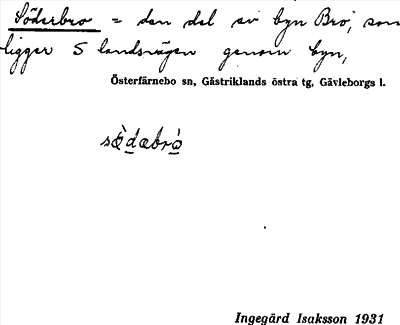 Söderbro = den del av byn Bro, som
ligger S landsvägen genom byn,
Österfärnebo sn, Gästriklands östra tg, Gävleborgs l.
Ingegärd Isaksson 1931